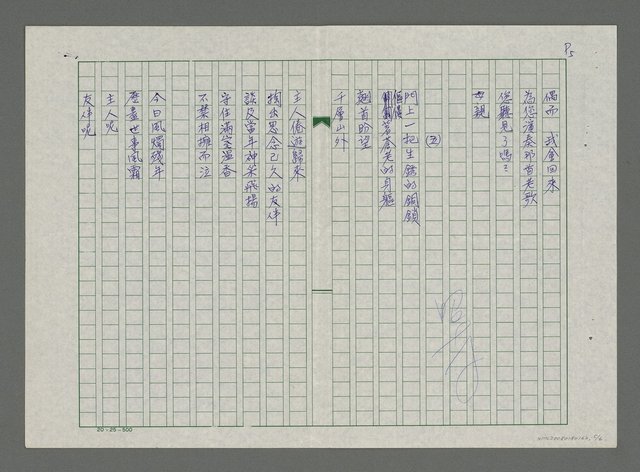 P5
偶而 我會回來
為您演奏那首老歌
您聽見了嗎？
母親
(五)
門上一把生銹的銅鎖
佝僂著蒼老的身軀
翹首盼望
千層山外
主人倦遊歸來
掏出思念已久的友伴
談及當年神采飛揚
守住滿室溫香
不禁相擁而泣
今日風燭殘年
歷盡世事風霜
主人呢
友伴呢
20-25-500